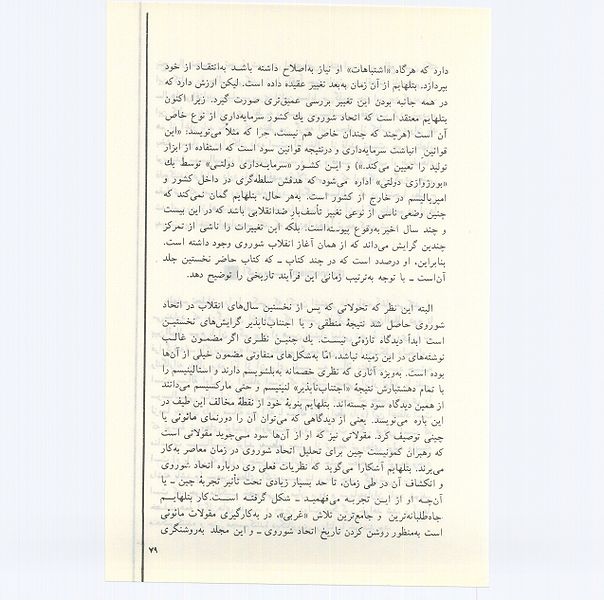 دارد که هرگاه «اشتباهات» او نیاز به‌اصلاح داشته باشد به‌انتقاد از خود
بپردازد. بتلهایم از آن زمان به‌بعد تغییر عقیده داده است. لیکن ارزش دارد که
در همه جانبه بودن این تغییر بررسی عمیق‌تری صورت گیرد. زیرا اکنون
بتلهایم معتقد است که اتحاد شوروی یك کشور سرمایه‌داری از نوع خاص
آن است (هرچند که چندان خاص هم نیست، چرا که مثلاً می‌نویسد: «این
قوانین انباشت سرمایه‌داری و درنتیجه قوانین سود است که استفاده از ابزار
تولید را تعیین می‌کند.») و این کشور «سرمایه‌داری دولتی» توسط یك
«بورژوازی دولتی» اداره می‌شود که هدفش سلطه‌گری در داخل کشور و
امپریالیسم در خارج از کشور است. به‌هر حال، بتلهایم گمان نمی‌کند که
چنین وضعی ناشی از نوعی تغییر تأسف‌بار ضدانقلابی باشد که در این بیست
و چند سال اخیر به‌وقوع پیوسته‌است. بلکه این تغییرات را ناشی از تمرکز
چندین گرایش می‌داند که از همان آغاز انقلاب شوروی وجود داشته است.
بنابراین، او درصدد است که در چند کتاب ــ که کتاب حاضر نخستین جلد
آن‌است ــ با توجه به‌ترتیب زمانی این فرآیند تاریخی را توضیح دهد.
البته این نظر که تحولاتی که پس از نخستین سال‌های انقلاب در اتحاد
شوروی حاصل شد نتیجهٔ منطقی و یا اجتناب‌ناپذیر گرایش‌های نخستین
است ابداً دیدگاه تازه‌ئی نیست. یك چنین نظری اگر مضمون غالب
نوشته‌های در این زمینه نباشد، امّا به‌شکل‌های متفاوتی مضمون خیلی از آن‌ها
بوده است. به‌ویژه آثاری که نظری خصمانه به‌بلشویسم دارند و استالینیسم را
با تمام دهشتبارش نتیجهٔ «اجتناب‌ناپذیر» لنینیسم و حتی مارکسیسم می‌دانند
از همین دیدگاه سود جسته‌اند. بتلهایم بنوبهٔ خود از نقطهٔ مخالف این طیف در
این باره می‌نویسد. یعنی از دیدگاهی که می‌توان آن را دورنمای مائوئی یا
چینی توصیف کرد. مقولاتی نیز که او از آن‌ها سود می‌جوید مقولاتی است
که رهبران کمونیست چین برای تحلیل اتحاد شوروی در زمان معاصر به‌کار
می‌برند. بتلهایم آشکارا می‌گوید که نظریات فعلی وی درباره اتحاد شوروی
و انکشاف آن در طی زمان، تا حد بسیار زیادی تحت تأثیر تجربهٔ چین ــ یا
آن‌چه او از این تجربه می‌فهمید ــ شکل گرفته است.کار بتلهایم
جاه‌طلبانه‌ترین و جامع‌ترین تلاش «غربی»، در به‌کارگیری مقولات مائوئی
است به‌منظور روشن کردن تاریخ اتحاد شوروی ــ و این مجلد به‌روشنگری
۷۹